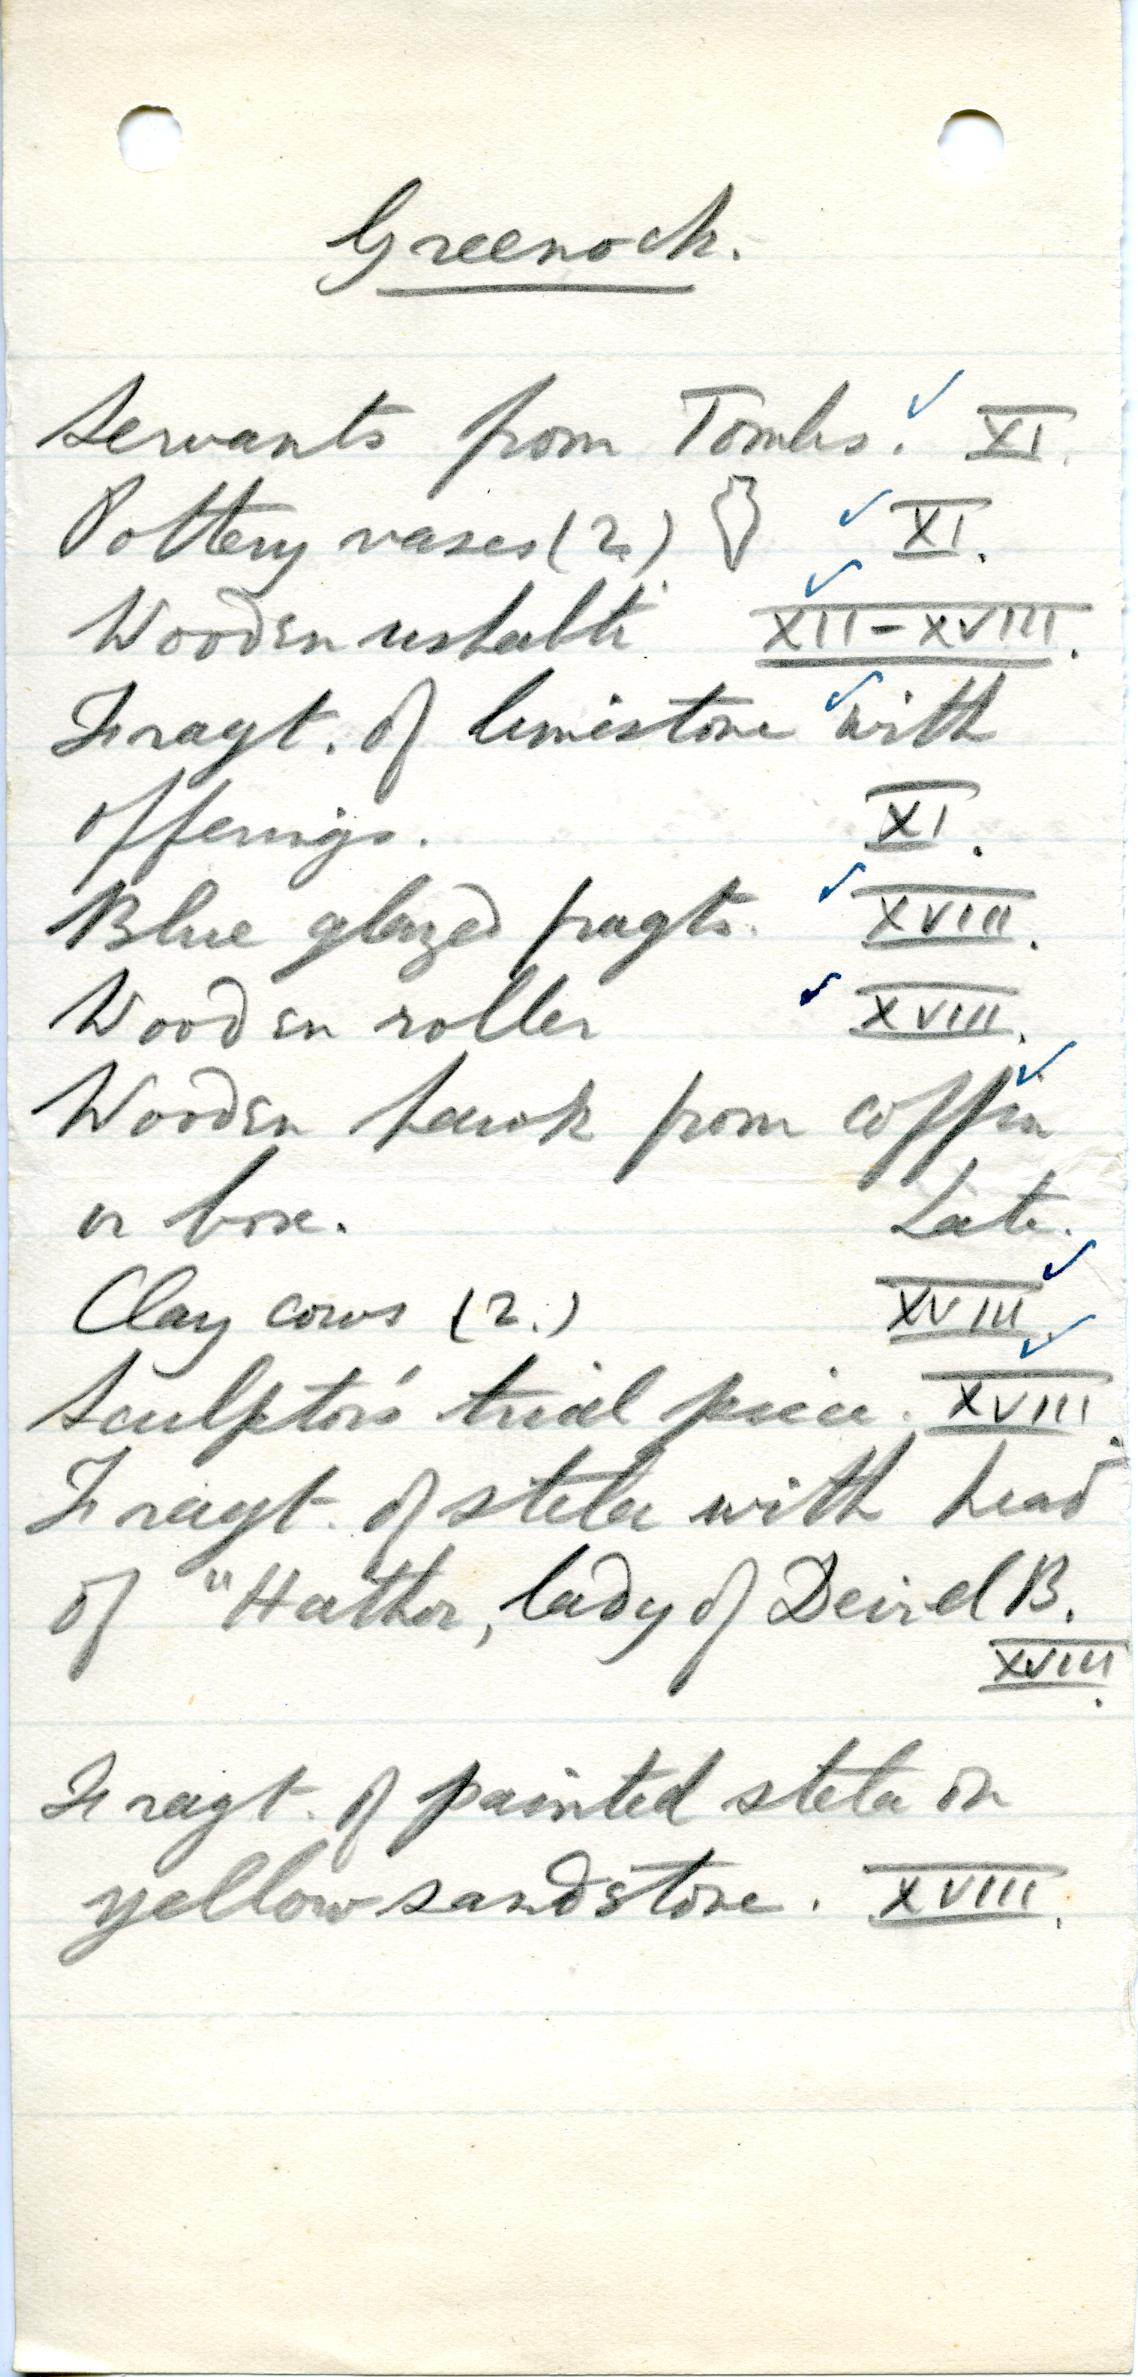 Greenock.
Servants from Tombs. ✓ XI.
Pottery vases (2.) ✓ XI.
Wooden ushabti ✓ XII - XVIII.
Fragt. of limestone ✓ with
offerings. XI.
Blue glazed fragts. ✓ XVIII.
Wooden roller ✓ XVIII.
Wooden hawk from coffin ✓
or box. Late.
Clay cows (2.) XVIII. ✓
Sculptor's trial piece. ✓ XVIII.
Fragt. of stela with head
of "Hathor, lady of Deir el B.
XVIII.
Fragt. of painted stela on
yellow sandstone. XVIII.